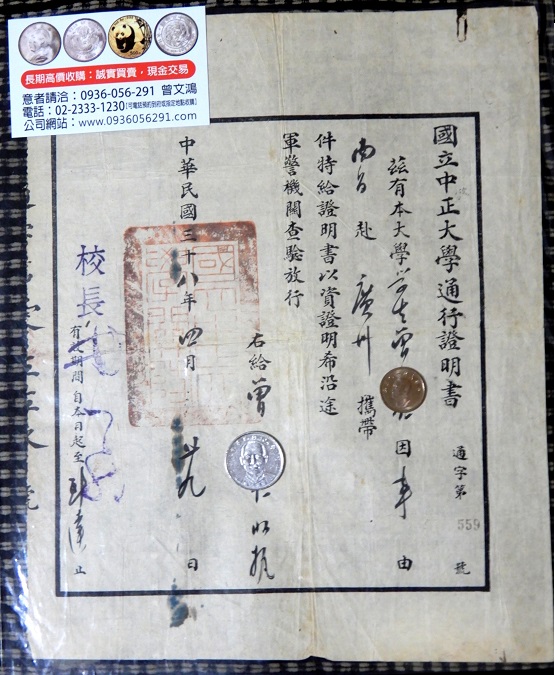 長期高價收購：誠實買賣，現金交易
意者請洽：0936-056-291 曾文鴻
電話：02-2333-1230【可電話預約到府或指定地點收購】
公司網站：www.0936056291.com
國立中正大學通行證明書
通字第 559 號
茲有本大學學生曾 因事由
南昌赴廣州攜帶
件特給證明書以資證明希沿途
軍警機關查驗放行
右給曾 收執
中華民國三十八年四月廿九日
校長
有效期間自本日起至到達止